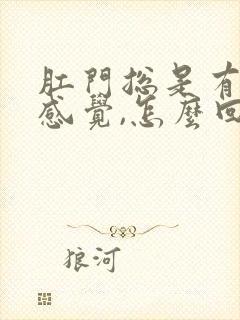 肛門總是有
感覺,怎麼回
狼河